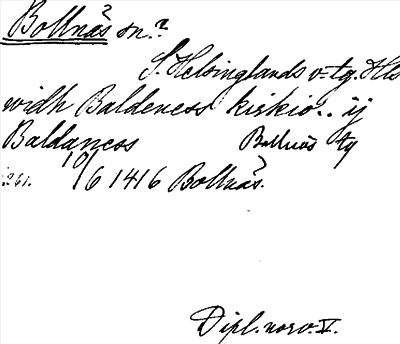 Bollnäs sn.?
S. Helsinglands v-tg. Hls
widh Baldeness kirkio.. ij
Baldaness Bollnäs tg
261. 10/6 1416 Bollnäs.
Dipl. norv. V.